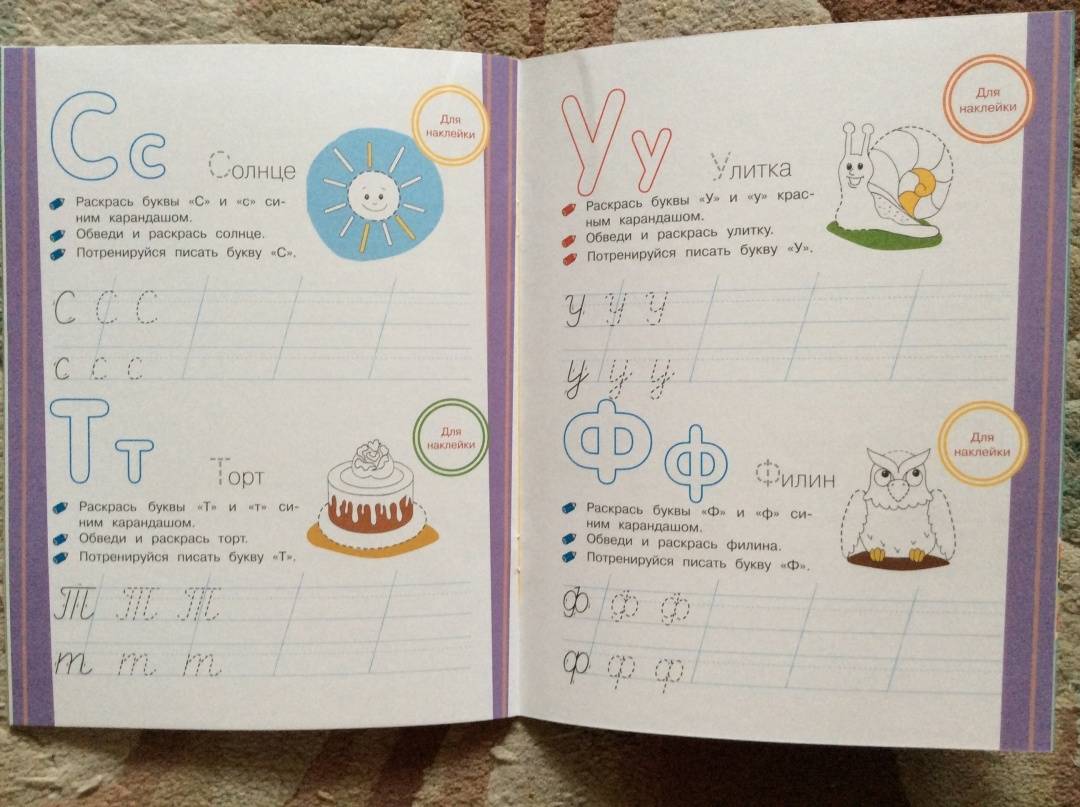 Сс
Для
наклейки
Солнце
Раскрась буквы «С» и «с» си-
ним карандашом.
Обведи и раскрась солнце.
Потренируйся писать букву «С».
С С С
с с с
Тт
Для
наклейки
Торт
Раскрась буквы «Т» и «т» си-
ним карандашом.
Обведи и раскрась торт.
Потренируйся писать букву «Т».
Т Т Т
т т т
Уу
Для
наклейки
Улитка
Раскрась буквы «У» и «у» крас-
ным карандашом.
Обведи и раскрась улитку.
Потренируйся писать букву «У».
У У У
у у у
Фф
Для
наклейки
Филин
Раскрась буквы «Ф» и «ф» си-
ним карандашом.
Обведи и раскрась филина.
Потренируйся писать букву «Ф».
Ф Ф Ф
ф ф ф